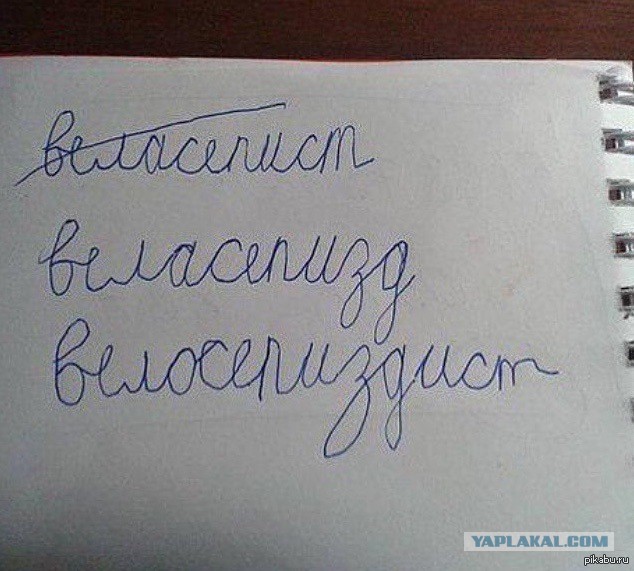 веласепист
веласепизд
велосепиздист
YAPLAKAL.COM
pikabu.ru